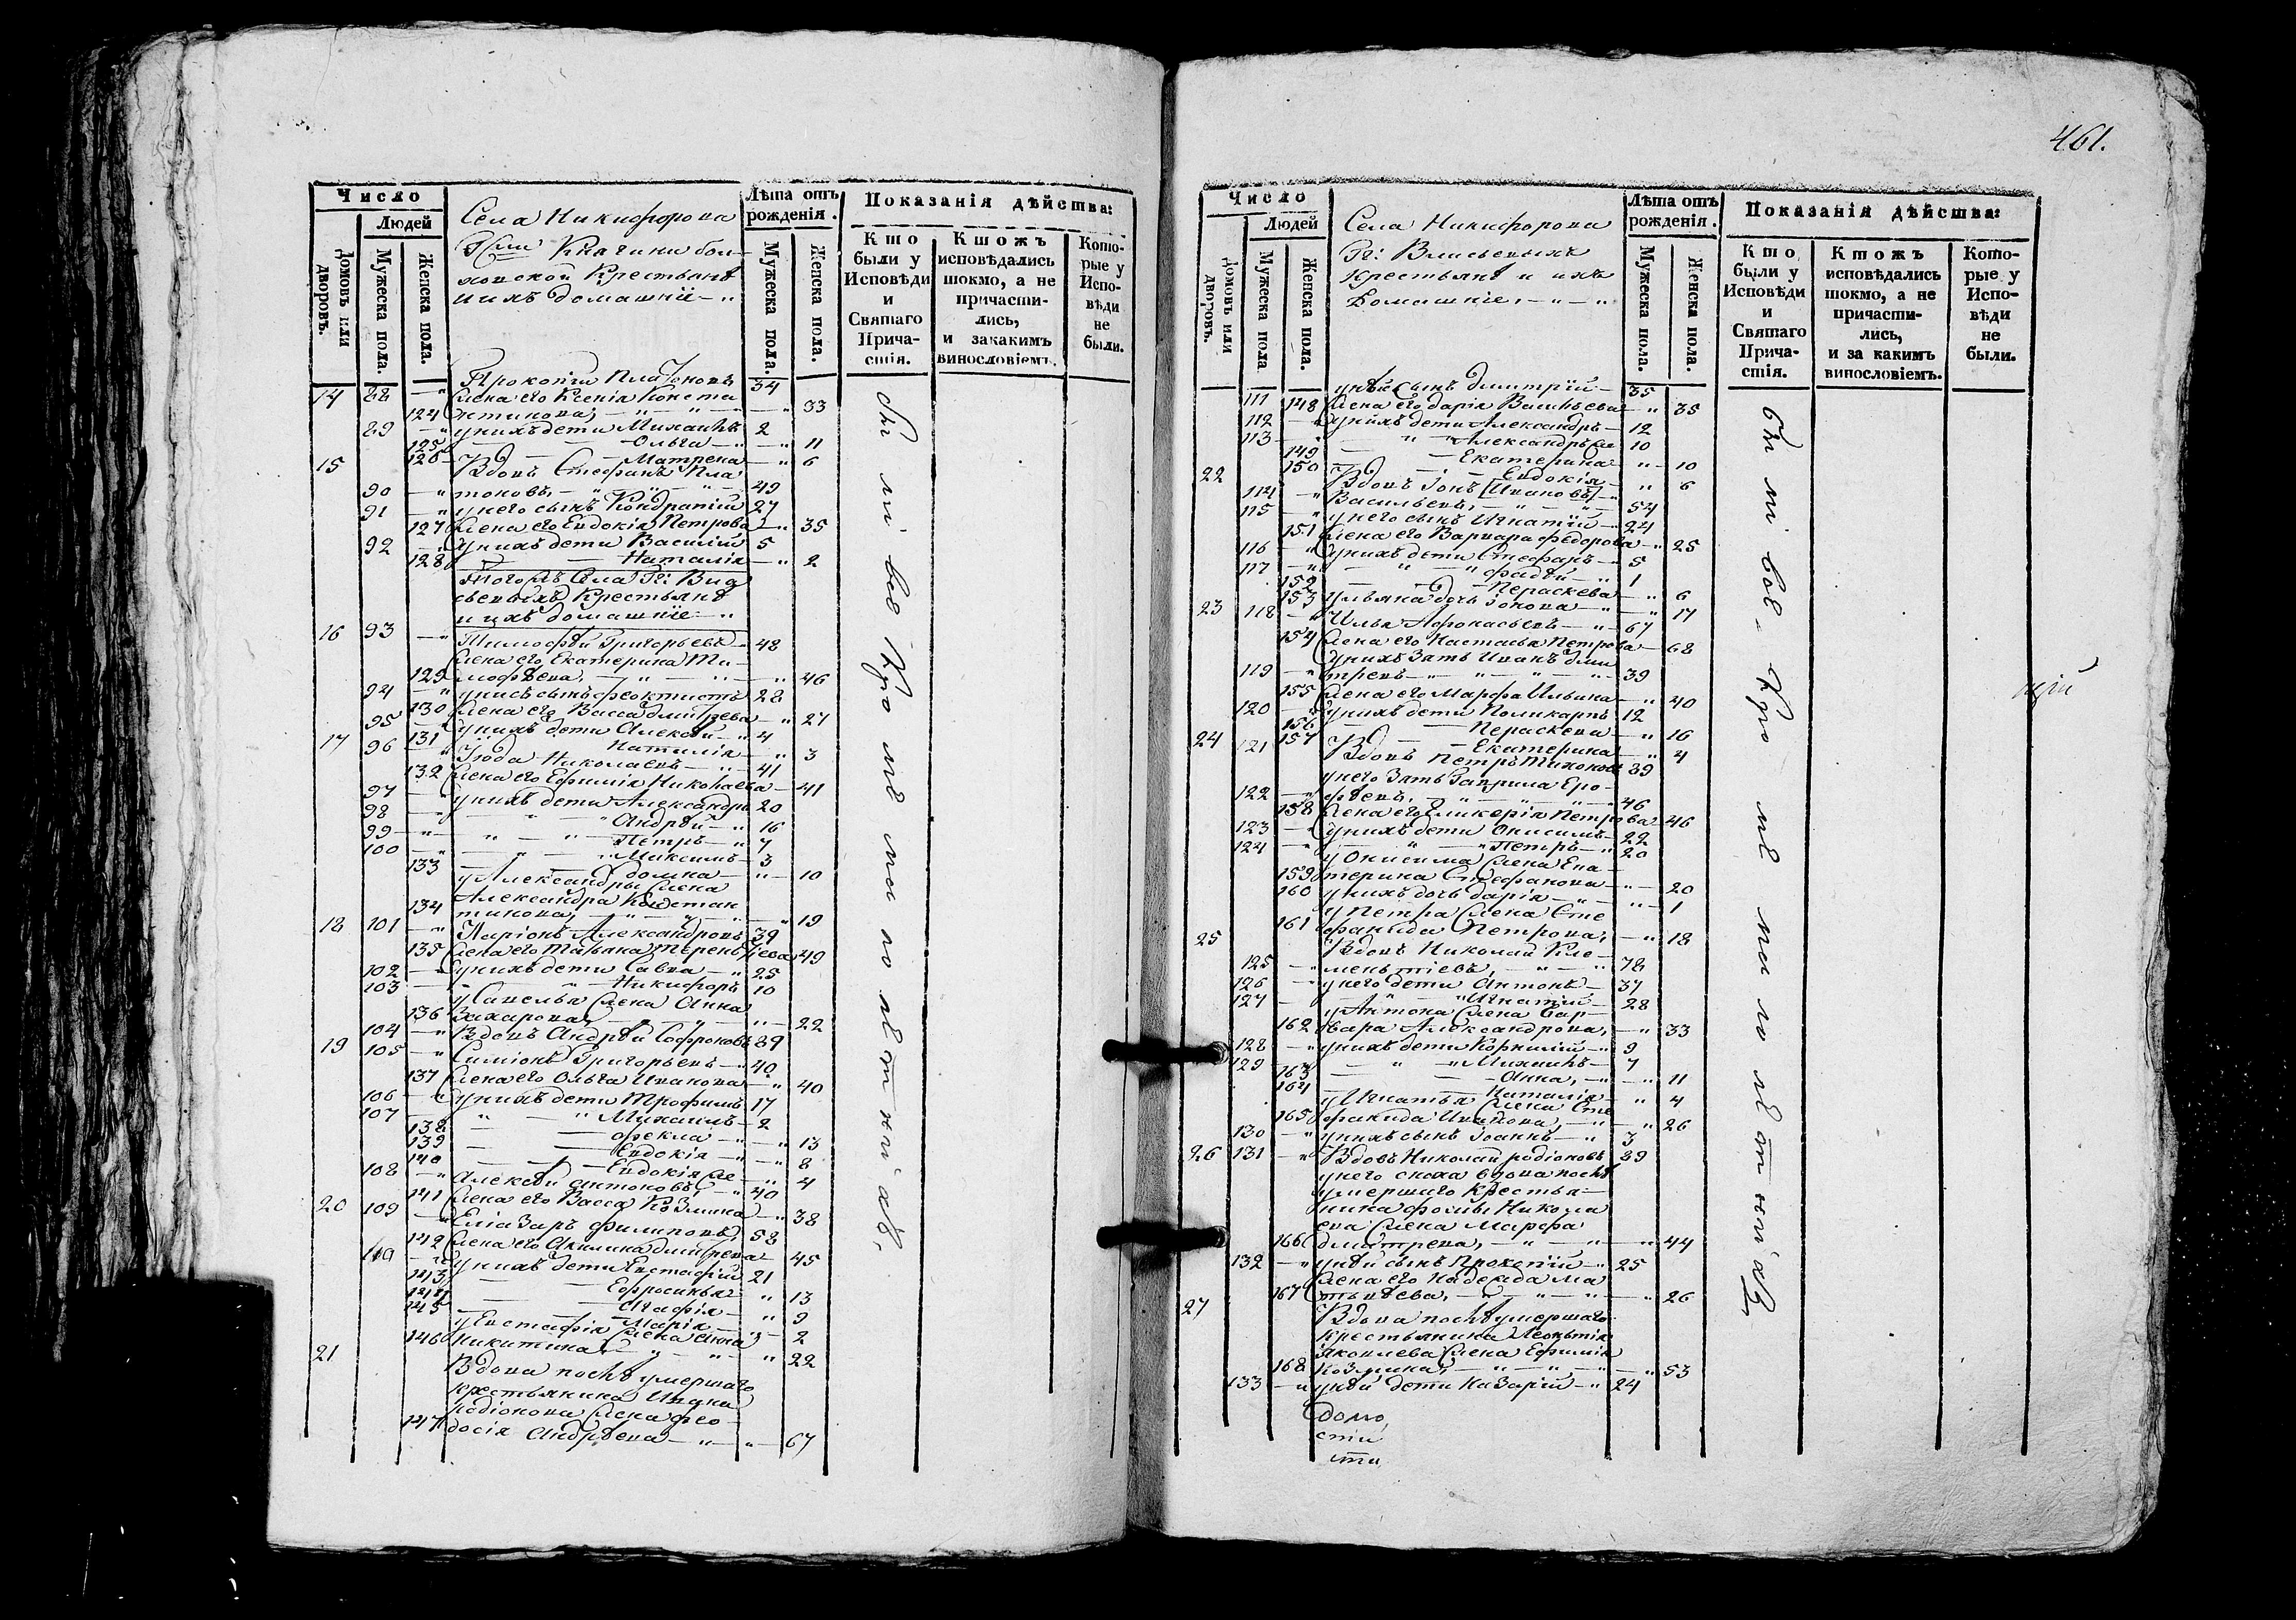 461.
Число
Людей
Домовъ или дворовъ.
Мужеска пола.
Женска пола.
Села Никифорова
Г<sup>жи</sup> Княгини
Крестьяне
и ихъ домашніе
Лѣта отъ рожденія.
Мужеска пола.
Женска пола.
Показанія дѣйства:
Кто были у Исповѣди и Святаго Причастія.
Ктожъ исповѣдались токмо, а не причастились, и закакимъ винословіемъ.
Которые у Исповѣди не были.
14 88 Прокопій Платоновъ 34
жена его Ксенія Конста
124 нтинова 33
89 у нихъ дети Михаилъ 2
125 Ольга 11
126 Матрена 6
15 Вдовъ Стефанъ Пла
90 тоновъ 49
91 у него сынъ Кондратій 27
127 жена его Евдокія Петрова 35
92 у нихъ дети Василій 5
128 Наталія 2
Тогожъ села Гг:
Крестьяне
и ихъ домашніе
16 93 Тимофѣй Григорьевъ 48
жена его Екатерина Ти
129 мофѣева 46
94 у нихъ сынъ Феоктистъ 28
130 жена его Васса Дмитрева 27
95 у нихъ дети Алексѣй 4
131 Наталія 3
17 96 Іюда Николаевъ 41
132 жена его Ефимія Николаева 41
97 у нихъ дети Александръ 20
98 Андрѣй 16
99 Петръ 7
100 Максимъ 3
133 Домна 10
у Александры жена
134 Александра Констан
тинова, 19
18 101 Ларіонъ Александровъ 39
135 жена его Татьяна Терентьева 49
102 у нихъ дети Савва 25
103 Никифоръ 10
у Савелья жена Анна
136 Захарова 22
104 Вдовъ Андрѣй Софроновъ 89
19 105 Симіонъ Григорьевъ 40
137 жена его Ольга Иванова 40
106 у нихъ дети Трофимъ 17
107 Михаилъ 2
138 Фекла 13
139 Евдокія 8
140 Евдокія же 4
108 Алексѣй Антоновъ 40
141 жена его Васса Козмина 38
20 109 Еліазаръ Филиповъ 58
142 жена его Акилина Дмитрева 45
110 у нихъ дети Евстафій 21
143 Ефросинья 13
144 Агафія 9
145 Марія 2
у Евстафія жена Анна
146 Никитина 22
21 Вдова послѣ умершаго
крестьянина Ивана
Родіонова жена Фео
147 досія Андрѣева 67
Число
Людей
Домовъ или дворовъ.
Мужеска пола.
Женска пола.
Села Никифорова
Гг:
Крестьяне и ихъ
Домашніе
Лѣта отъ рожденія.
Мужеска пола.
Женска пола.
Показанія дѣйства:
Кто были у Исповѣди и Святаго Причастія.
Ктожъ исповѣдались токмо, а не причастились, и за какимъ винословіемъ.
Которые у Исповѣди не были.
111 у нѣй сынъ Дмитрій 35
148 жена его Дарія Васильева 35
112 у нихъ дети Александръ 12
113 Александръ же 10
149 Екатерина 10
150 Евдокія 6
22 Вдовъ Іонъ [Ивановъ]
114 Васильевъ, 54
115 у него сынъ Игнатій 24
151 жена его Варвара Федорова 25
116 у нихъ дети Стефанъ 5
117 Фадѣй 1
152 Пераскева 6
153 Ульяна дочь Іонова 17
23 118 Илья Афонасьевъ 67
154 жена его Настасья Петрова 68
у нихъ зять Иванъ Дми
119 тревъ 39
155 жена его Марфа Ильина 40
120 у нихъ дети Поликарпъ 12
156 Пераскева 16
157 Екатерина 4
24 121 Вдовъ Петръ Тихоновъ 89
у него зять Гаврила Еро
122 фѣевъ 46
158 жена его Гликерія Петрова 46
123 у нихъ дети Онисимъ 22
124 Петръ 20
у Онисима жена Ека
159 терина Стефанова 20
160 у нихъ дочь Дарія 1
у Петра жена Сте
161 фанида Петрова, 18
25 Вдовъ Николай Кле
125 ментіевъ, 78
126 у него дети Антонъ 37
127 Игнатій 28
у Антона жена Вар
162 вара Александрова, 33
128 у нихъ дети Корнилій 9
129 Михаилъ 7
163 Анна, 11
164 Наталія 4
у Игнатья жена Сте
165 фанида Иванова, 26
130 у нихъ сынъ Іоаннъ 3
26 131 Вдовъ Николай Родіоновъ 89
у него сноха вдова послѣ
умершаго крестья
нина Фомы Никола
ева жена Марфа
166 Дмитрева, 44
132 у нѣй сынъ Прокопій 25
жена его Надежда Ма
167 твѣева, 26
27 Вдова послѣ умершаго
крестьянина Леонтія
Яковлева жена Ефимія
168 Козмина, 53
133 у нѣй дети Назарій 24